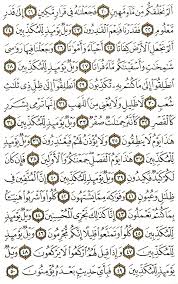 أَلَمْ نَخْلُقكُّم مِّن مَّآءٍ مَّهِينٍ ٢٠ فَجَعَلْنَٰهُ فِى قَرَارٍ مَّكِينٍ ٢١ إِلَىٰ قَدَرٍ
مَّعْلُومٍ ٢٢ فَقَدَرْنَا فَنِعْمَ ٱلْقَٰدِرُونَ ٢٣ وَيْلٌ يَوْمَئِذٍ لِّلْمُكَذِّبِينَ ٢٤
أَلَمْ نَجْعَلِ ٱلْأَرْضَ كِفَاتًا ٢٥ أَحْيَآءً وَأَمْوَٰتًا ٢٦ وَجَعَلْنَا فِيهَا رَوَٰسِىَ
شَٰمِخَٰتٍ وَأَسْقَيْنَٰكُم مَّآءً فُرَاتًا ٢٧ وَيْلٌ يَوْمَئِذٍ لِّلْمُكَذِّبِينَ ٢٨
ٱنطَلِقُوٓا۟ إِلَىٰ مَا كُنتُم بِهِۦ تُكَذِّبُونَ ٢٩ ٱنطَلِقُوٓا۟ إِلَىٰ ظِلٍّ ذِى ثَلَٰثِ
شُعَبٍ ٣٠ لَّا ظَلِيلٍ وَلَا يُغْنِى مِنَ ٱللَّهَبِ ٣١ إِنَّهَا تَرْمِى بِشَرَرٍ
كَٱلْقَصْرِ ٣٢ كَأَنَّهُۥ جِمَٰلَتٌ صُفْرٌ ٣٣ وَيْلٌ يَوْمَئِذٍ لِّلْمُكَذِّبِينَ ٣٤
هَٰذَا يَوْمُ لَا يَنطِقُونَ ٣٥ وَلَا يُؤْذَنُ لَهُمْ فَيَعْتَذِرُونَ ٣٦ وَيْلٌ يَوْمَئِذٍ
لِّلْمُكَذِّبِينَ ٣٧ هَٰذَا يَوْمُ ٱلْفَصْلِ جَمَعْنَٰكُمْ وَٱلْأَوَّلِينَ ٣٨ فَإِن كَانَ
لَكُمْ كَيْدٌ فَكِيدُونِ ٣٩ وَيْلٌ يَوْمَئِذٍ لِّلْمُكَذِّبِينَ ٤٠ إِنَّ ٱلْمُتَّقِينَ فِى
ظِلَٰلٍ وَعُيُونٍ ٤١ وَفَوَٰكِهَ مِمَّا يَشْتَهُونَ ٤٢ كُلُوا۟ وَٱشْرَبُوا۟ هَنِيٓـًٔۢا
بِمَا كُنتُمْ تَعْمَلُونَ ٤٣ إِنَّا كَذَٰلِكَ نَجْزِى ٱلْمُحْسِنِينَ ٤٤ وَيْلٌ يَوْمَئِذٍ
لِّلْمُكَذِّبِينَ ٤٥ كُلُوا۟ وَتَمَتَّعُوا۟ قَلِيلًا إِنَّكُم مُّجْرِمُونَ ٤٦ وَيْلٌ يَوْمَئِذٍ
لِّلْمُكَذِّبِينَ ٤٧ وَإِذَا قِيلَ لَهُمُ ٱرْكَعُوا۟ لَا يَرْكَعُونَ ٤٨ وَيْلٌ يَوْمَئِذٍ
لِّلْمُكَذِّبِينَ ٤٩ فَبِأَىِّ حَدِيثٍۭ بَعْدَهُۥ يُؤْمِنُونَ ٥٠